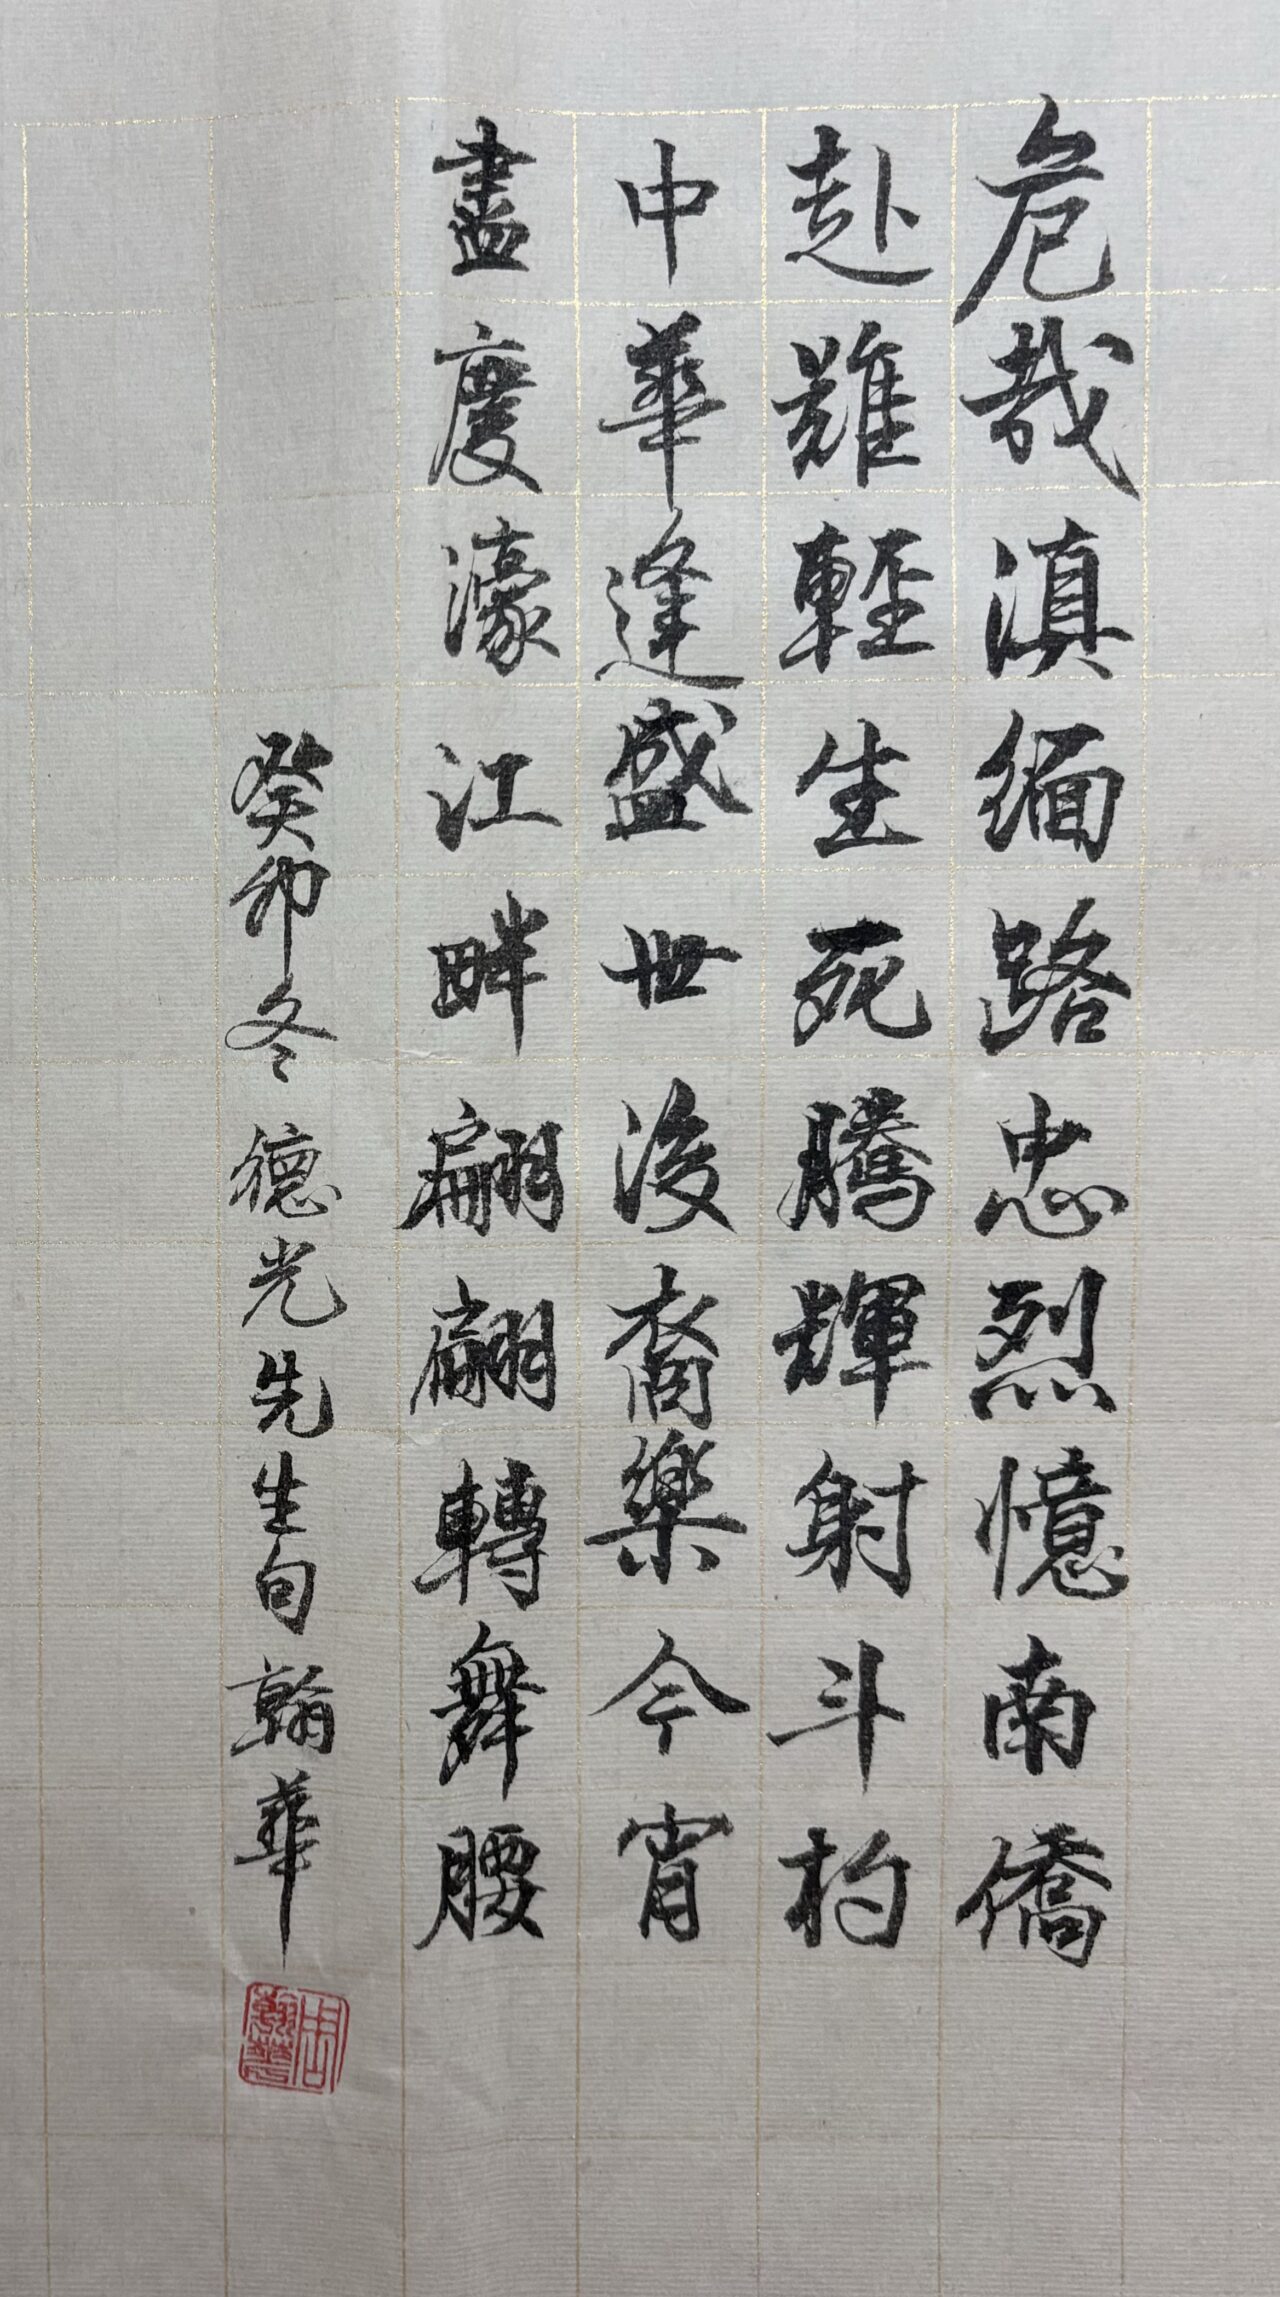 危哉滇緬路忠烈憶南僑
赴難輕生死騰輝射斗杓
中華逢盛世後裔樂今宵
盡慶濠江畔翩翩轉舞腰
癸卯冬德光先生句翰華
周翰華印